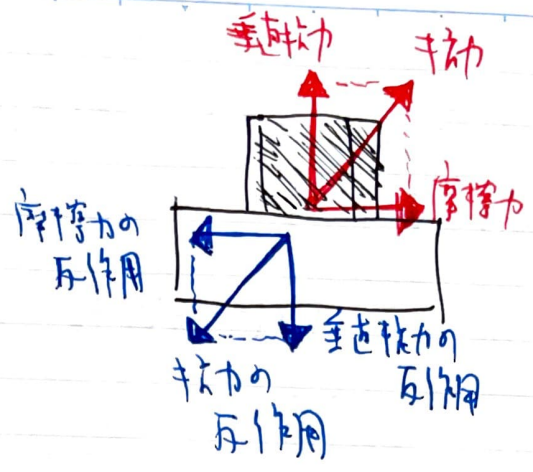 垂直抗力
抗力
摩擦力
摩擦力の
反作用
垂直抗力の
反作用
抗力の
反作用